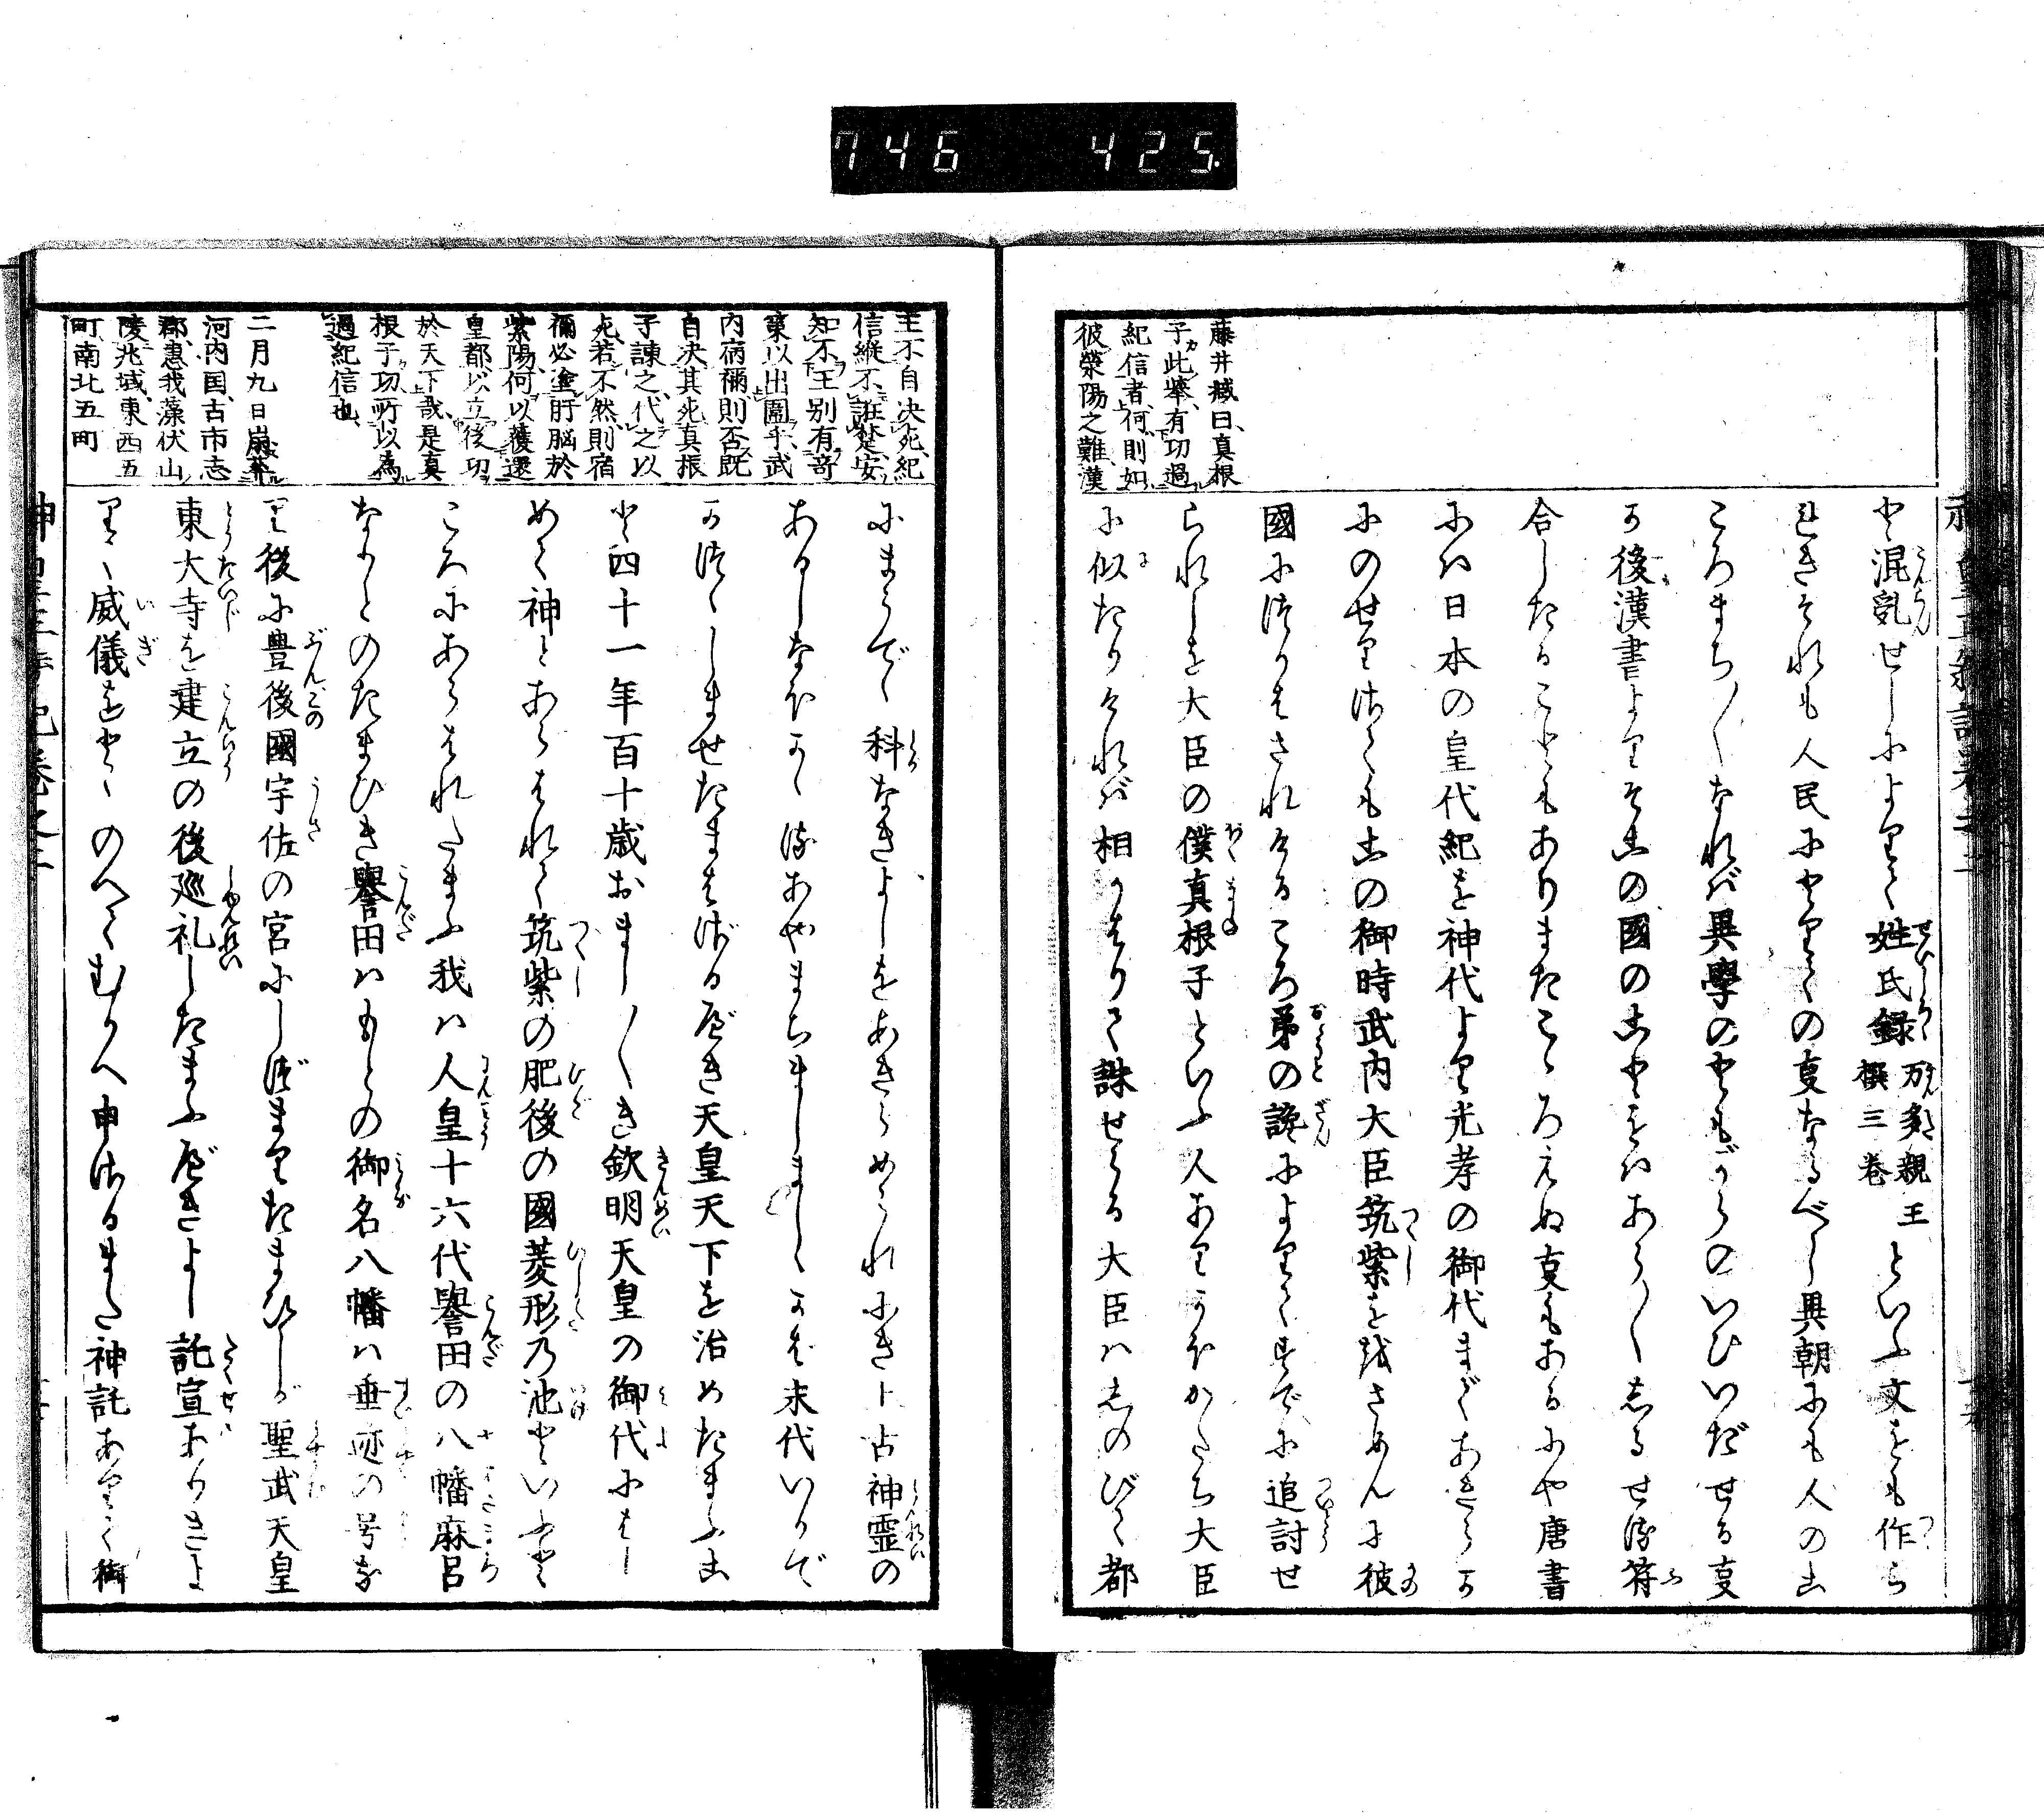 746 425
藤井臧曰真根
子此挙有功過
紀信者何則如
彼滎陽之難漢
と混乱せしによりて姓氏録万多親王撰三巻といふ文をも作ら
れきそれも人民にとりての事なるべし異朝にも人の心
ころまち〱なれば異学のともがらのいひいだせる事
か後漢書よりそこの国のことをはあら〱しるせり符
合したることもありまたこゝろえぬ事もあるにや唐書
には日本の皇代紀を神代より光孝の御代まであきらか
にのせりさても此の御時武内大臣筑紫を治さめんに彼
國につかはされけるころ弟の讒によりてすでに追討せ
られしを大臣の僕真根子といふ人ありかほかたち大臣
に似たりければ相かはりて誅せらる大臣はしのびて都
王不自決死紀
信縦不誑楚安
知不王別有奇
策以出圍乎武
内宿禰則否既
自决其死真根
子諫之代之以
死若不然則宿
禰必塗肝脳於
紫陽何以獲還
皇都以立後功
於天下哉是真
根子功所以為
過紀信也
二月九日崩葬
河内国古市志
郡惠我藻伏山
陵兆域東西五
町南北五町
にまうで科なきよしをあきらめられにき上古神霊の
あるしなほかゝるあやまちましましゝかば末代いかで
かつゝしませたまはざるべき天皇天下を治めたまふこ
と四十一年百十歳おまし〱き欽明天皇の御代にはし
めて神とあらはれて筑紫の肥後の國菱形乃池といふと
ころにあらはれたまふ我は人皇十六代譽田の八幡麻呂
なりとのたまひき譽田はもとの御名八幡は垂迹の号な
り後に豊後國宇佐の宮にしづまりたまひしが聖武天皇
東大寺を建立の後巡礼したまふべきよし託宣ありきよ
りて威儀をとゝのへてむかへ申さるまた神託ありて御